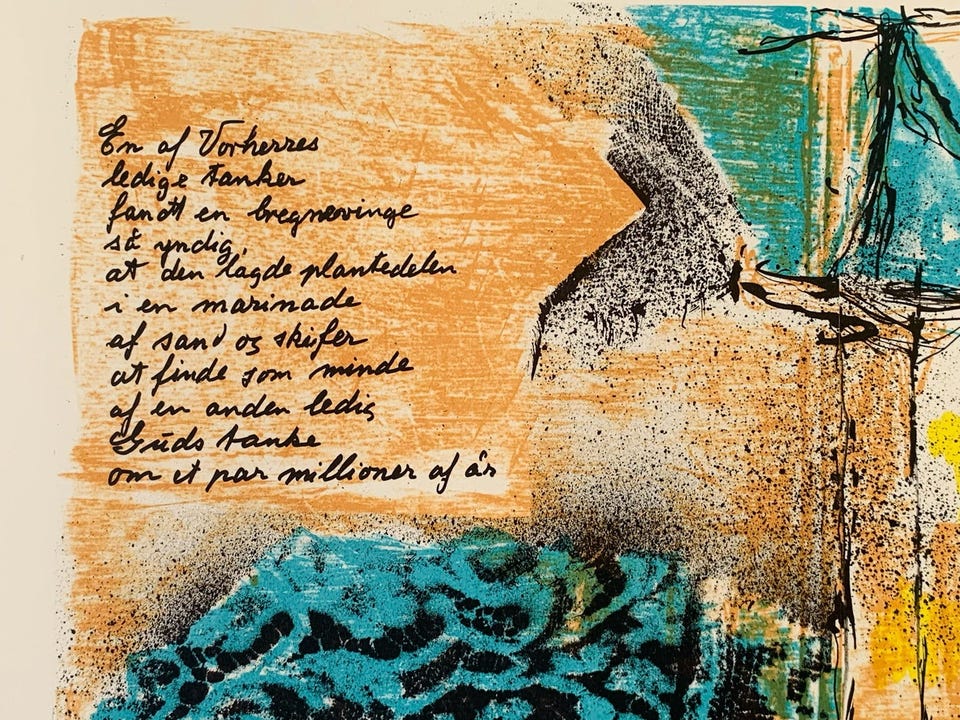 En af Vorherres
ledige tanker
fandt en bregnevinge
så yndig,
at den lagde plantedelen
i en marinade
af sand og skifer
at finde som minde
af en anden ledig
Guds tanke
om et par millioner af år